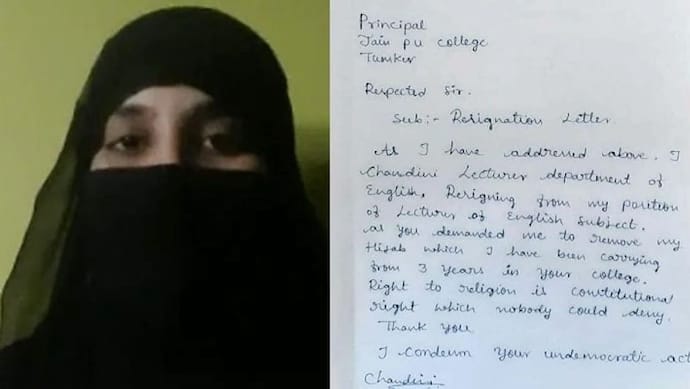 Principal
Jain pu college
Tumkur
Respected Sir.
Sub:- Resignation Letter
As I have addressed above. I
Chandini Lecturer department of
English, Resigning from my position
of Lecturer of English subject.
as you demanded me to remove my
Hijab which I have been carrying
from 3 years in your college.
Right to religion is constitutional
right which nobody could deny.
Thank you
I condemn your undemocratic act
Chandini